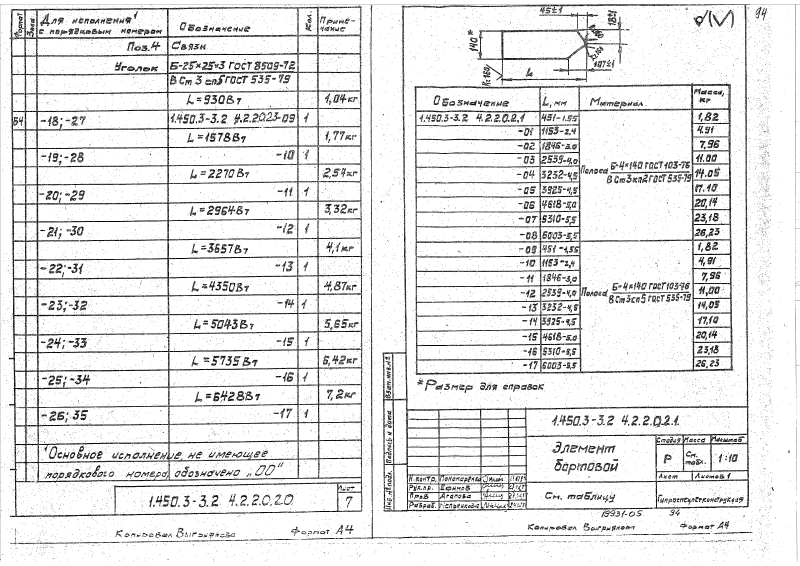 Формат Зона Для исполнения¹ с порядковым номером Обозначение Кол. Примечание
Поз.4 Связи
Уголок Б-25×25×3 ГОСТ 8509-72
ВСт 3 сп5 ГОСТ 535-79
L=930Вт 1,04кг
Б4 -18;-27 1.450.3-3.2 4.2.2.0.23-09 1
L=1578Вт 1,77кг
-19;-28 -10 1
L=2270Вт 2,54кг
-20;-29 -11 1
L=2964Вт 3,32кг
-21;-30 -12 1
L=3657Вт 4,1кг
-22;-31 -13 1
L=4350Вт 4,87кг
-23;-32 -14 1
L=5043Вт 5,65кг
-24;-33 -15 1
L=5735Вт 6,42кг
-25;-34 -16 1
L=6428Вт 7,2кг
-26;35 -17 1
¹Основное исполнение, не имеющее
порядкового номера, обозначено „00"
1.450.3-3.2 4.2.2.0.20 Лист 7
Копировал Формат А4
94
45±1
140*
L
107±1
Обозначение L, мм Материал Масса, кг
1.450.3-3.2 4.2.2.0.2.1 451-1.55 1,82
-01 1153-2,4 4.91
-02 1846-3,0 7,96
-03 2539-4,0 11.00
-04 3232-4,5 14.05
-05 3925-4,5 17.10
-06 4618-5,0 20,14
-07 5310-5,5 23,18
-08 6003-5,5 26,23
Полоса Б-4×140 ГОСТ 103-76
ВСт3кп2 ГОСТ 535-79
-09 451-1,55 1,82
-10 1153-2,4 4,91
-11 1846-3,0 7,96
-12 2539-4,0 11,00
-13 3232-4,5 14,05
-14 3925-4,5 17,10
-15 4618-5,0 20,14
-16 5310-5,5 23,18
-17 6003-5,5 26,23
Полоса Б-4×140 ГОСТ 103-76
ВСт3сп5 ГОСТ 535-79
*Размер для справок
Взам.инв.№
Подпись и дата
Инв.№ подл.
1.450.3-3.2 4.2.2.0.2.1.
Элемент бортовой
Стадия Масса Масштаб
Р См. табл. 1:10
Лист Листов 1
Н.контр. Пономаренко
Рук.пр. Ефимов
Пров. Агапова
Разраб.
См. таблицу
19931-05 94
Копировал Формат А4